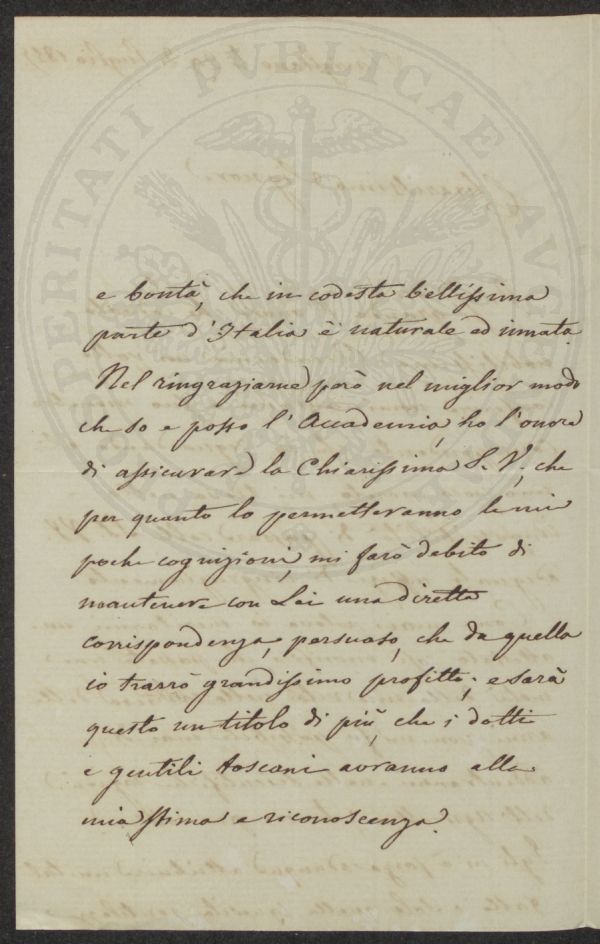 PROSPERITATI PUBLICAE AUGENDAE
e bontà, che in codesta bellissima
parte d'Italia è naturale ed innata.
Nel ringraziarne però nel miglior modo
che so e posso l'Accademia, ho l'onore
di assicurare la Chiarissima S. V., che
per quanto lo permetteranno le mie
poche cognizioni, mi farò debito di
mantenere con Lei una diretta
corrispondenza, persuaso, che da quella
io trarrò grandissimo profitto; e sarà
questo un titolo di più, che i dotti
e gentili toscani avranno alla
mia stima e riconoscenza.